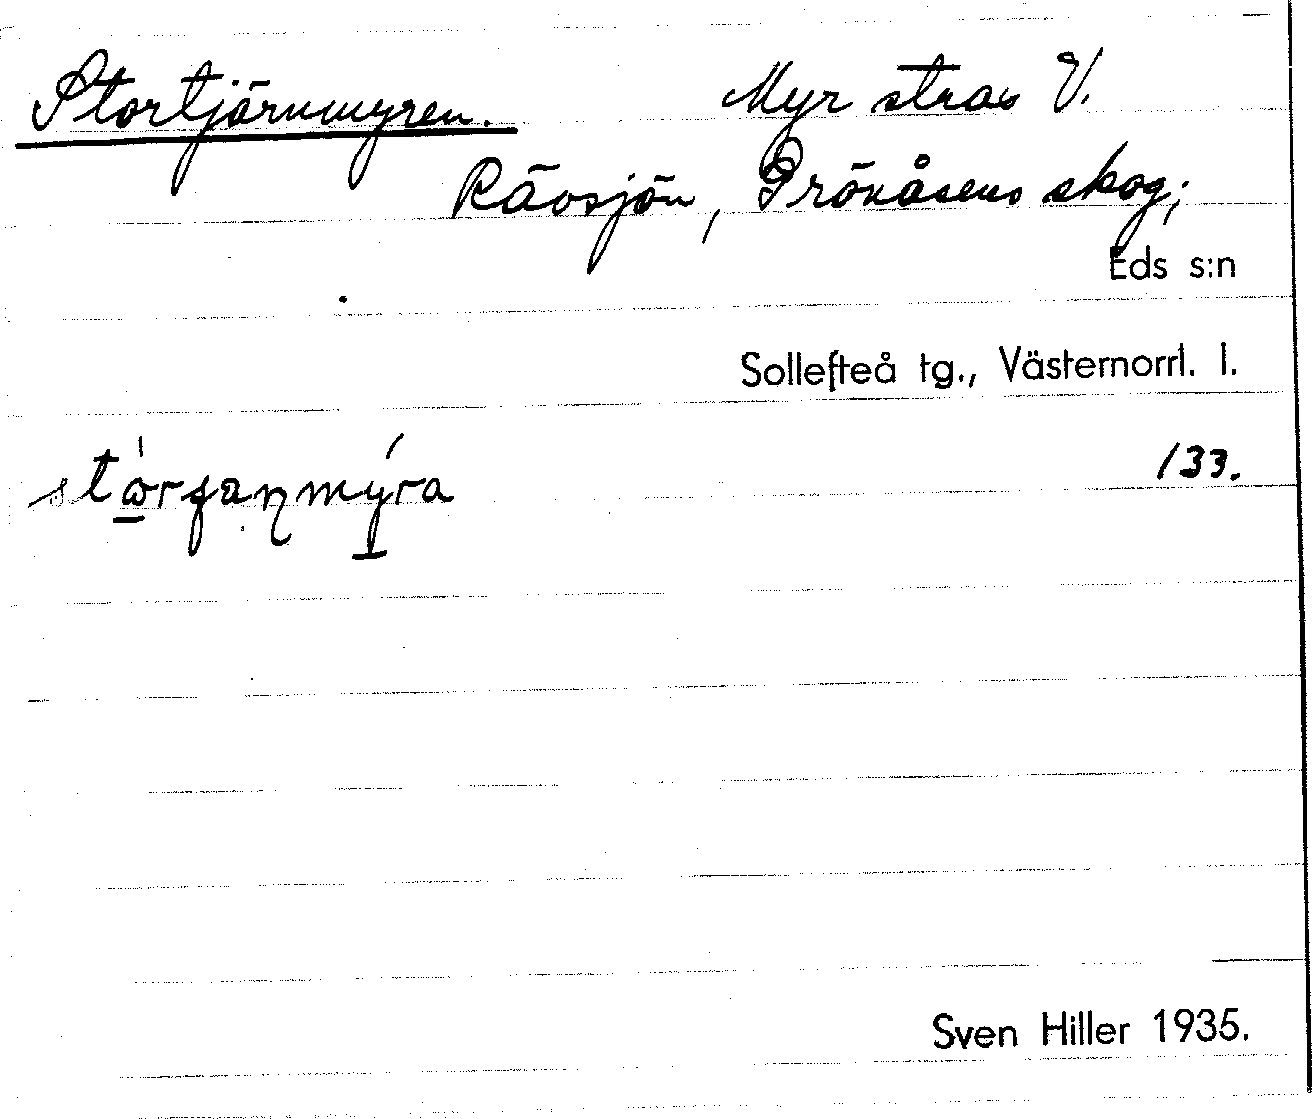 Stortjärnmyren. Myr strax V.
Rävsjön, Prökåsens skog;
Eds s:n
Sollefteå tg., Västernorrl. l.
133.
Sven Hiller 1935.